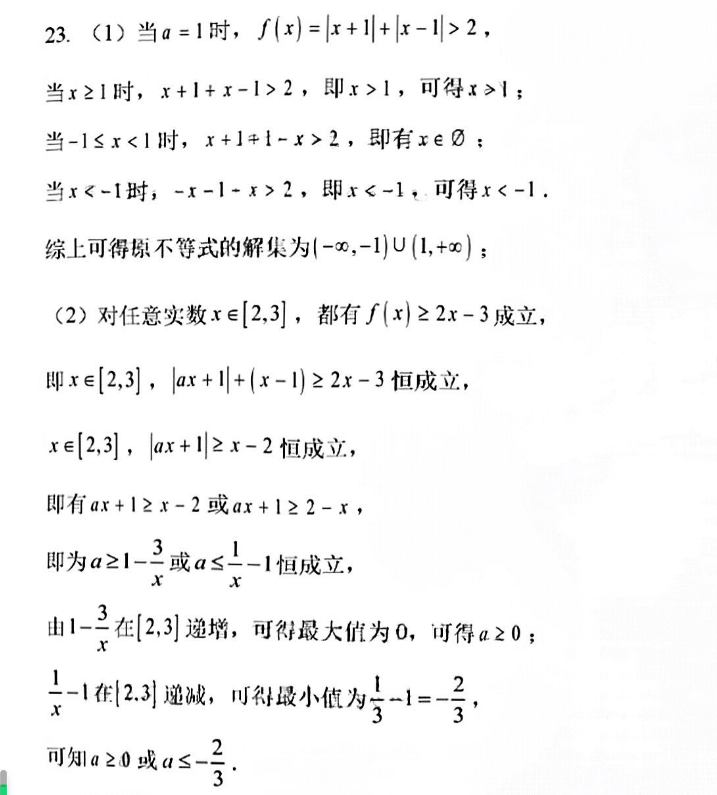 23. （1）当a=1时，f(x)=|x+1|+|x-1|>2，
当x≥1时，x+1+x-1>2，即x>1，可得x>1；
当-1≤x<1时，x+1+1-x>2，即有x∈∅；
当x<-1时，-x-1-x>2，即x<-1，可得x<-1.
综上可得原不等式的解集为(-∞,-1)∪(1,+∞)；
（2）对任意实数x∈[2,3]，都有f(x)≥2x-3成立，
即x∈[2,3]，|ax+1|+(x-1)≥2x-3恒成立，
x∈[2,3]，|ax+1|≥x-2恒成立，
即有ax+1≥x-2或ax+1≥2-x，
即为a≥1-3/x或a≤1/x-1恒成立，
由1-3/x在[2,3]递增，可得最大值为0，可得a≥0；
1/x-1在[2,3]递减，可得最小值为1/3-1=-2/3，
可知a≥0或a≤-2/3.